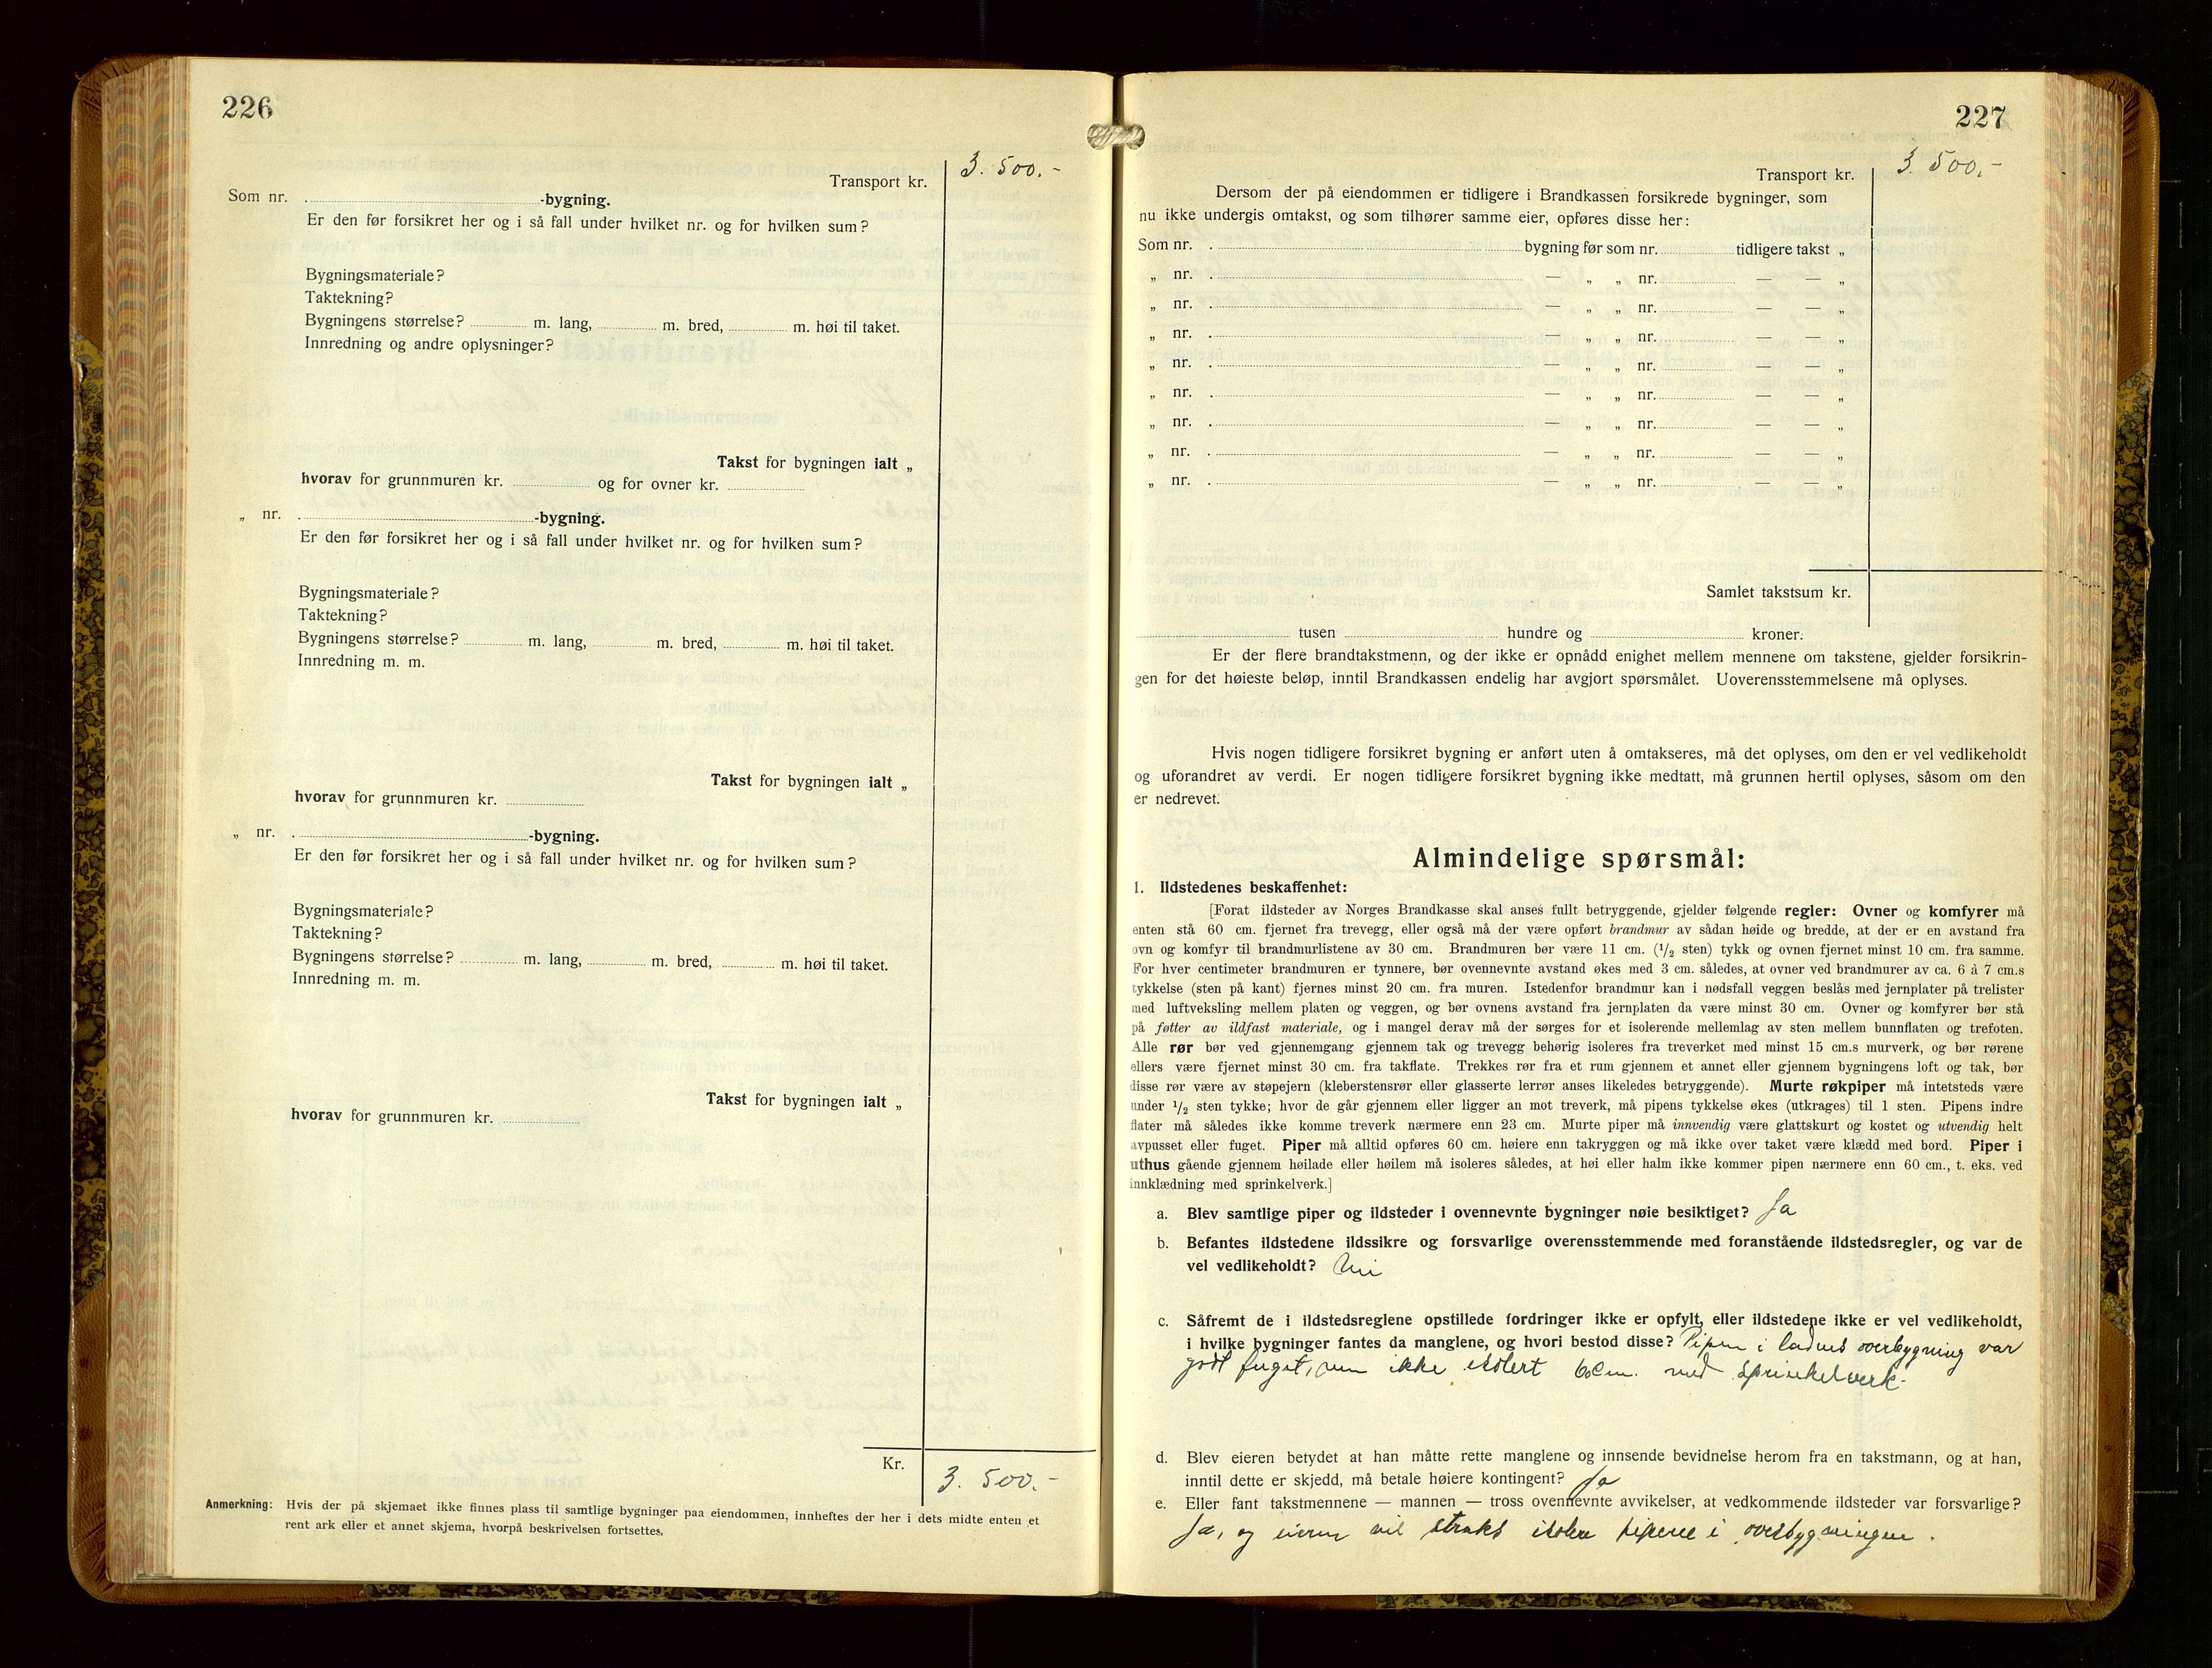 226
Transport kr. 3.500.-
Som nr. -bygning.
Er den før forsikret her og i så fall under hvilket nr. og for hvilken sum?
Bygningsmateriale?
Taktekning?
Bygningens størrelse? m. lang, m. bred, m. høi til taket.
Innredning og andre oplysninger?
Takst for bygningen ialt „
hvorav for grunnmuren kr. og for ovner kr.
„ nr. -bygning.
Er den før forsikret her og i så fall under hvilket nr. og for hvilken sum?
Bygningsmateriale?
Taktekning?
Bygningens størrelse? m. lang, m. bred, m. høi til taket.
Innredning m. m.
Takst for bygningen ialt „
hvorav for grunnmuren kr.
„ nr. -bygning.
Er den før forsikret her og i så fall under hvilket nr. og for hvilken sum?
Bygningsmateriale?
Taktekning?
Bygningens størrelse? m. lang, m. bred, m. høi til taket.
Innredning m. m.
Takst for bygningen ialt „
hvorav for grunnmuren kr.
Kr. 3.500.-
Anmerkning: Hvis der på skjemaet ikke finnes plass til samtlige bygninger paa eiendommen, innheftes der her i dets midte enten et
rent ark eller et annet skjema, hvorpå beskrivelsen fortsettes.
227
Transport kr. 3.500.-
Dersom der på eiendommen er tidligere i Brandkassen forsikrede bygninger, som
nu ikke undergis omtakst, og som tilhører samme eier, opføres disse her:
Som nr. bygning før som nr. tidligere takst „
„ nr. — „ „ nr. — — „
„ nr. — „ „ nr. — — „
„ nr. — „ „ nr. — — „
„ nr. — „ „ nr. — — „
„ nr. — „ „ nr. — — „
„ nr. — „ „ nr. — — „
„ nr. — „ „ nr. — — „
„ nr. — „ „ nr. — — „
Samlet takstsum kr.
tusen hundre og kroner.
Er der flere brandtakstmenn, og der ikke er opnådd enighet mellem mennene om takstene, gjelder forsikrin-
gen for det høieste beløp, inntil Brandkassen endelig har avgjort spørsmålet. Uoverensstemmelsene må oplyses.
Hvis nogen tidligere forsikret bygning er anført uten å omtakseres, må det oplyses, om den er vel vedlikeholdt
og uforandret av verdi. Er nogen tidligere forsikret bygning ikke medtatt, må grunnen hertil oplyses, såsom om den
er nedrevet.
Almindelige spørsmål:
1. Ildstedenes beskaffenhet:
[Forat ildsteder av Norges Brandkasse skal anses fullt betryggende, gjelder følgende regler: Ovner og komfyrer må
enten stå 60 cm. fjernet fra trevegg, eller også må der være opført brandmur av sådan høide og bredde, at der er en avstand fra
ovn og komfyr til brandmurlistene av 30 cm. Brandmuren bør være 11 cm. (1/2 sten) tykk og ovnen fjernet minst 10 cm. fra samme.
For hver centimeter brandmuren er tynnere, bør ovennevnte avstand økes med 3 cm. således, at ovner ved brandmurer av ca. 6 à 7 cm.s
tykkelse (sten på kant) fjernes minst 20 cm. fra muren. Istedenfor brandmur kan i nødsfall veggen beslås med jernplater på trelister
med luftveksling mellem platen og veggen, og bør ovnens avstand fra jernplaten da være minst 30 cm. Ovner og komfyrer bør stå
på føtter av ildfast materiale, og i mangel derav må der sørges for et isolerende mellemlag av sten mellem bunnflaten og trefoten.
Alle rør bør ved gjennemgang gjennem tak og trevegg behørig isoleres fra treverket med minst 15 cm.s murverk, og bør rørene
ellers være fjernet minst 30 cm. fra takflate. Trekkes rør fra et rum gjennem et annet eller gjennem bygningens loft og tak, bør
disse rør være av støpejern (kleberstensrør eller glasserte lerrør anses likeledes betryggende). Murte røkpiper må intetsteds være
under 1/2 sten tykke; hvor de går gjennem eller ligger an mot treverk, må pipens tykkelse økes (utkrages) til 1 sten. Pipens indre
flater må således ikke komme treverk nærmere enn 23 cm. Murte piper må innvendig være glattskurt og kostet og utvendig helt
avpusset eller fuget. Piper må alltid opføres 60 cm. høiere enn takryggen og må ikke over taket være klædd med bord. Piper i
uthus gående gjennem høilade eller høilem må isoleres således, at høi eller halm ikke kommer pipen nærmere enn 60 cm., t. eks. ved
innklædning med sprinkelverk.]
a. Blev samtlige piper og ildsteder i ovennevnte bygninger nøie besiktiget? Ja
b. Befantes ildstedene ildssikre og forsvarlige overensstemmende med foranstående ildstedsregler, og var de
vel vedlikeholdt? Nei
c. Såfremt de i ildstedsreglene opstillede fordringer ikke er opfylt, eller ildstedene ikke er vel vedlikeholdt,
i hvilke bygninger fantes da manglene, og hvori bestod disse? Pipen i ladens overbygning var
godt fuget, men ikke isolert 60cm. med sprinkelverk.
d. Blev eieren betydet at han måtte rette manglene og innsende bevidnelse herom fra en takstmann, og at han,
inntil dette er skjedd, må betale høiere kontingent? Ja
e. Eller fant takstmennene — mannen — tross ovennevnte avvikelser, at vedkommende ildsteder var forsvarlige?
Ja, og eieren vil straks isolere pipene i overbygningen.